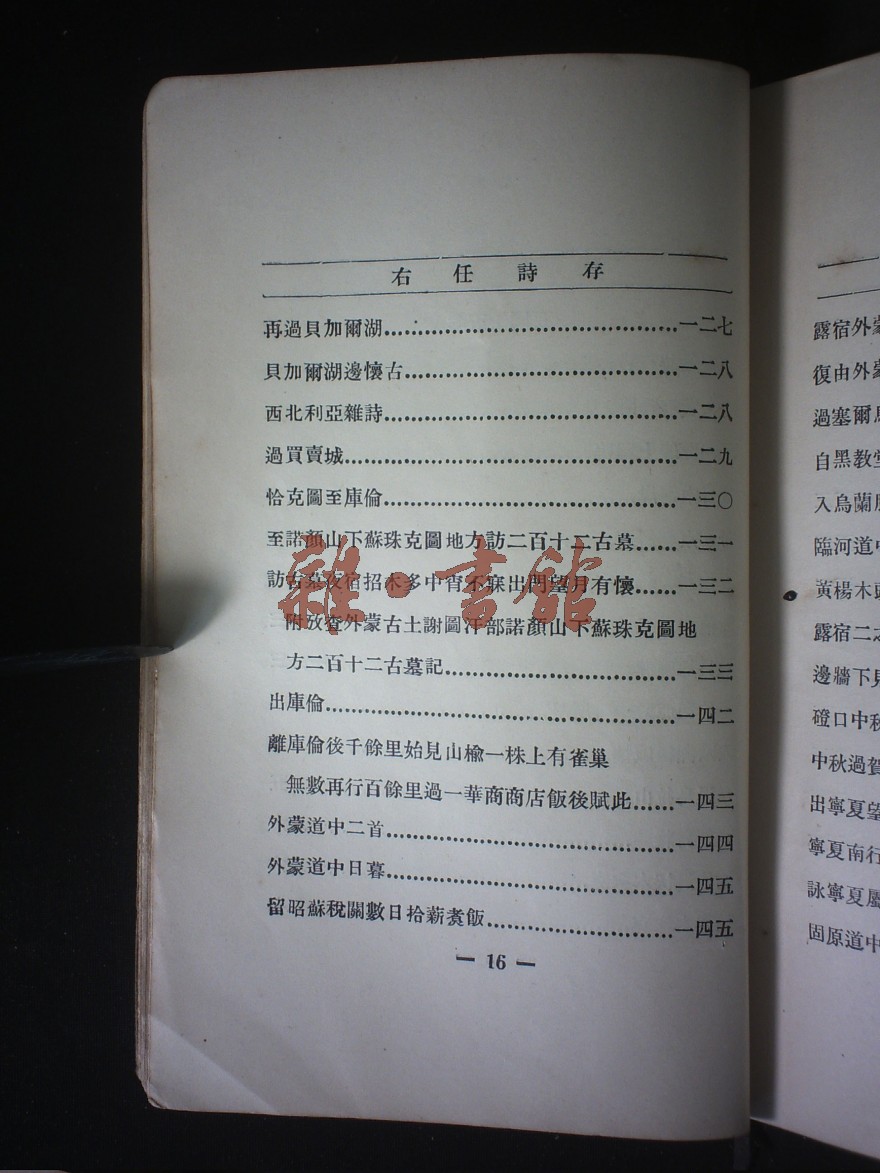 右任詩存
再過貝加爾湖……一二七
貝加爾湖邊懷古……一二八
西北利亞雜詩……一二八
過買賣城……一二九
恰克圖至庫倫……一三〇
至諾顏山下蘇珠克圖地方訪二百十二古墓……一三一
訪古墓夜宿招木多中宵不寐出門望月有懷……一三二
附放查外蒙古土謝圖汗部諾顏山下蘇珠克圖地
方二百十二古墓記……一三三
出庫倫……一四二
離庫倫後千餘里始見山榆一株上有雀巢
無數再行百餘里過一華商商店飯後賦此……一四三
外蒙道中二首……一四四
外蒙道中日暮……一四五
留昭蘇稅關數日拾薪煑飯……一四五
— 16 —
雜·書館
露宿外蒙
復由外蒙
過塞爾
自黑教堂
入烏蘭
臨河道中
黃楊木
露宿二
邊牆下見
磴口中秋
中秋過賀
出寧夏望
寧夏南行
詠寧夏
固原道中